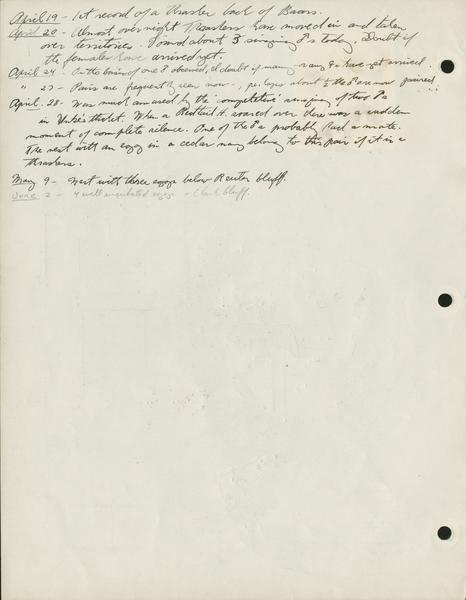 April 19 - 1st record of a thrasher back of Baars.
April 20 - Almost over night Thrashers have moved in and taken
over territories. Found about 5 singing ♂s today. Doubt if
the females have arrived yet.
April 24 - On the basis of one ♂ observed, I doubt if many ♀s have yet arrived.
" 27 - Pairs are frequently seen now - perhaps about ½ the ♂s are now paired
April 28 - Was much amused by the competitive singing of two ♂s
in thicket. When a Redtail H. soared over there was a sudden
moment of complete silence. One of the ♂s probably had a mate.
The nest with an egg in a cedar may belong to this pair if it is a
thrashers.
May 9 - Nest with three eggs below Reuter bluff.
June 2 - 4 well incubated eggs - Clark bluff.